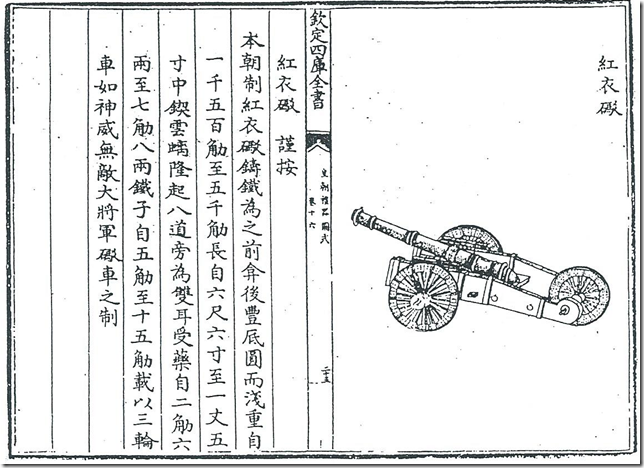 紅衣礮
欽定四庫全書
皇朝禮器圖式
卷十六
紅衣礮 謹按
本朝制紅衣礮鑄鐵為之前弇後豐底圓而淺重自
一千五百觔至五千觔長自六尺六寸至一丈五
寸中鍥雲螭隆起八道旁為雙耳受藥自二觔六
兩至七觔八兩鐵子自五觔至十五觔載以三輪
車如神威無敵大將軍礮車之制